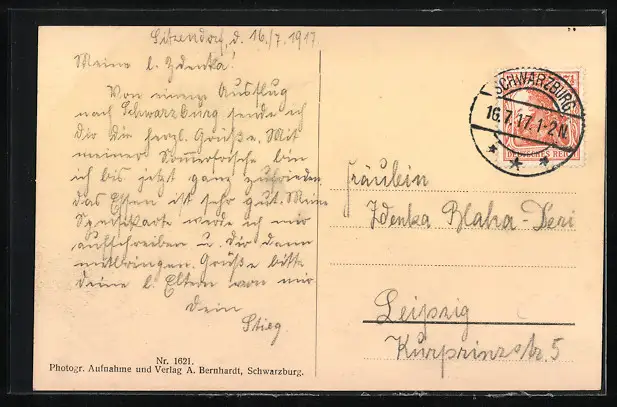 Sitzendorf, d. 16./7. 1917
Meine l. Zdenka!
Von einem Ausflug
nach Schwarzburg sende ich
dir die herzl. Grüße. Mit
meiner Sommerfrische bin
ich bis jetzt ganz zufrieden,
das Essen ist sehr gut. Meine
Speisekarte werde ich mir
aufschreiben u. dir dann
mitbringen. Grüße bitte
deine l. Eltern von mir
Dein
Stieg
Nr. 1621.
Photogr. Aufnahme und Verlag A. Bernhardt, Schwarzburg.
SCHWARZBURG
16.7.17.1-2N.
DEUTSCHES REICH
Fräulein
Zdenka Blaha-
Leipzig
Kurprinzstr. 5